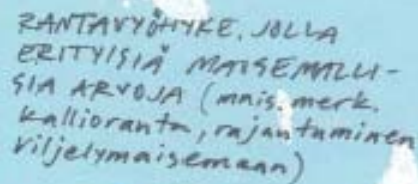 RANTAVYÖHYKE, JOLLA
ERITYISIÄ MAISEMALLI-
SIA ARVOJA (mais. merk.
kallioranta, rajautuminen
viljelymaisemaan)